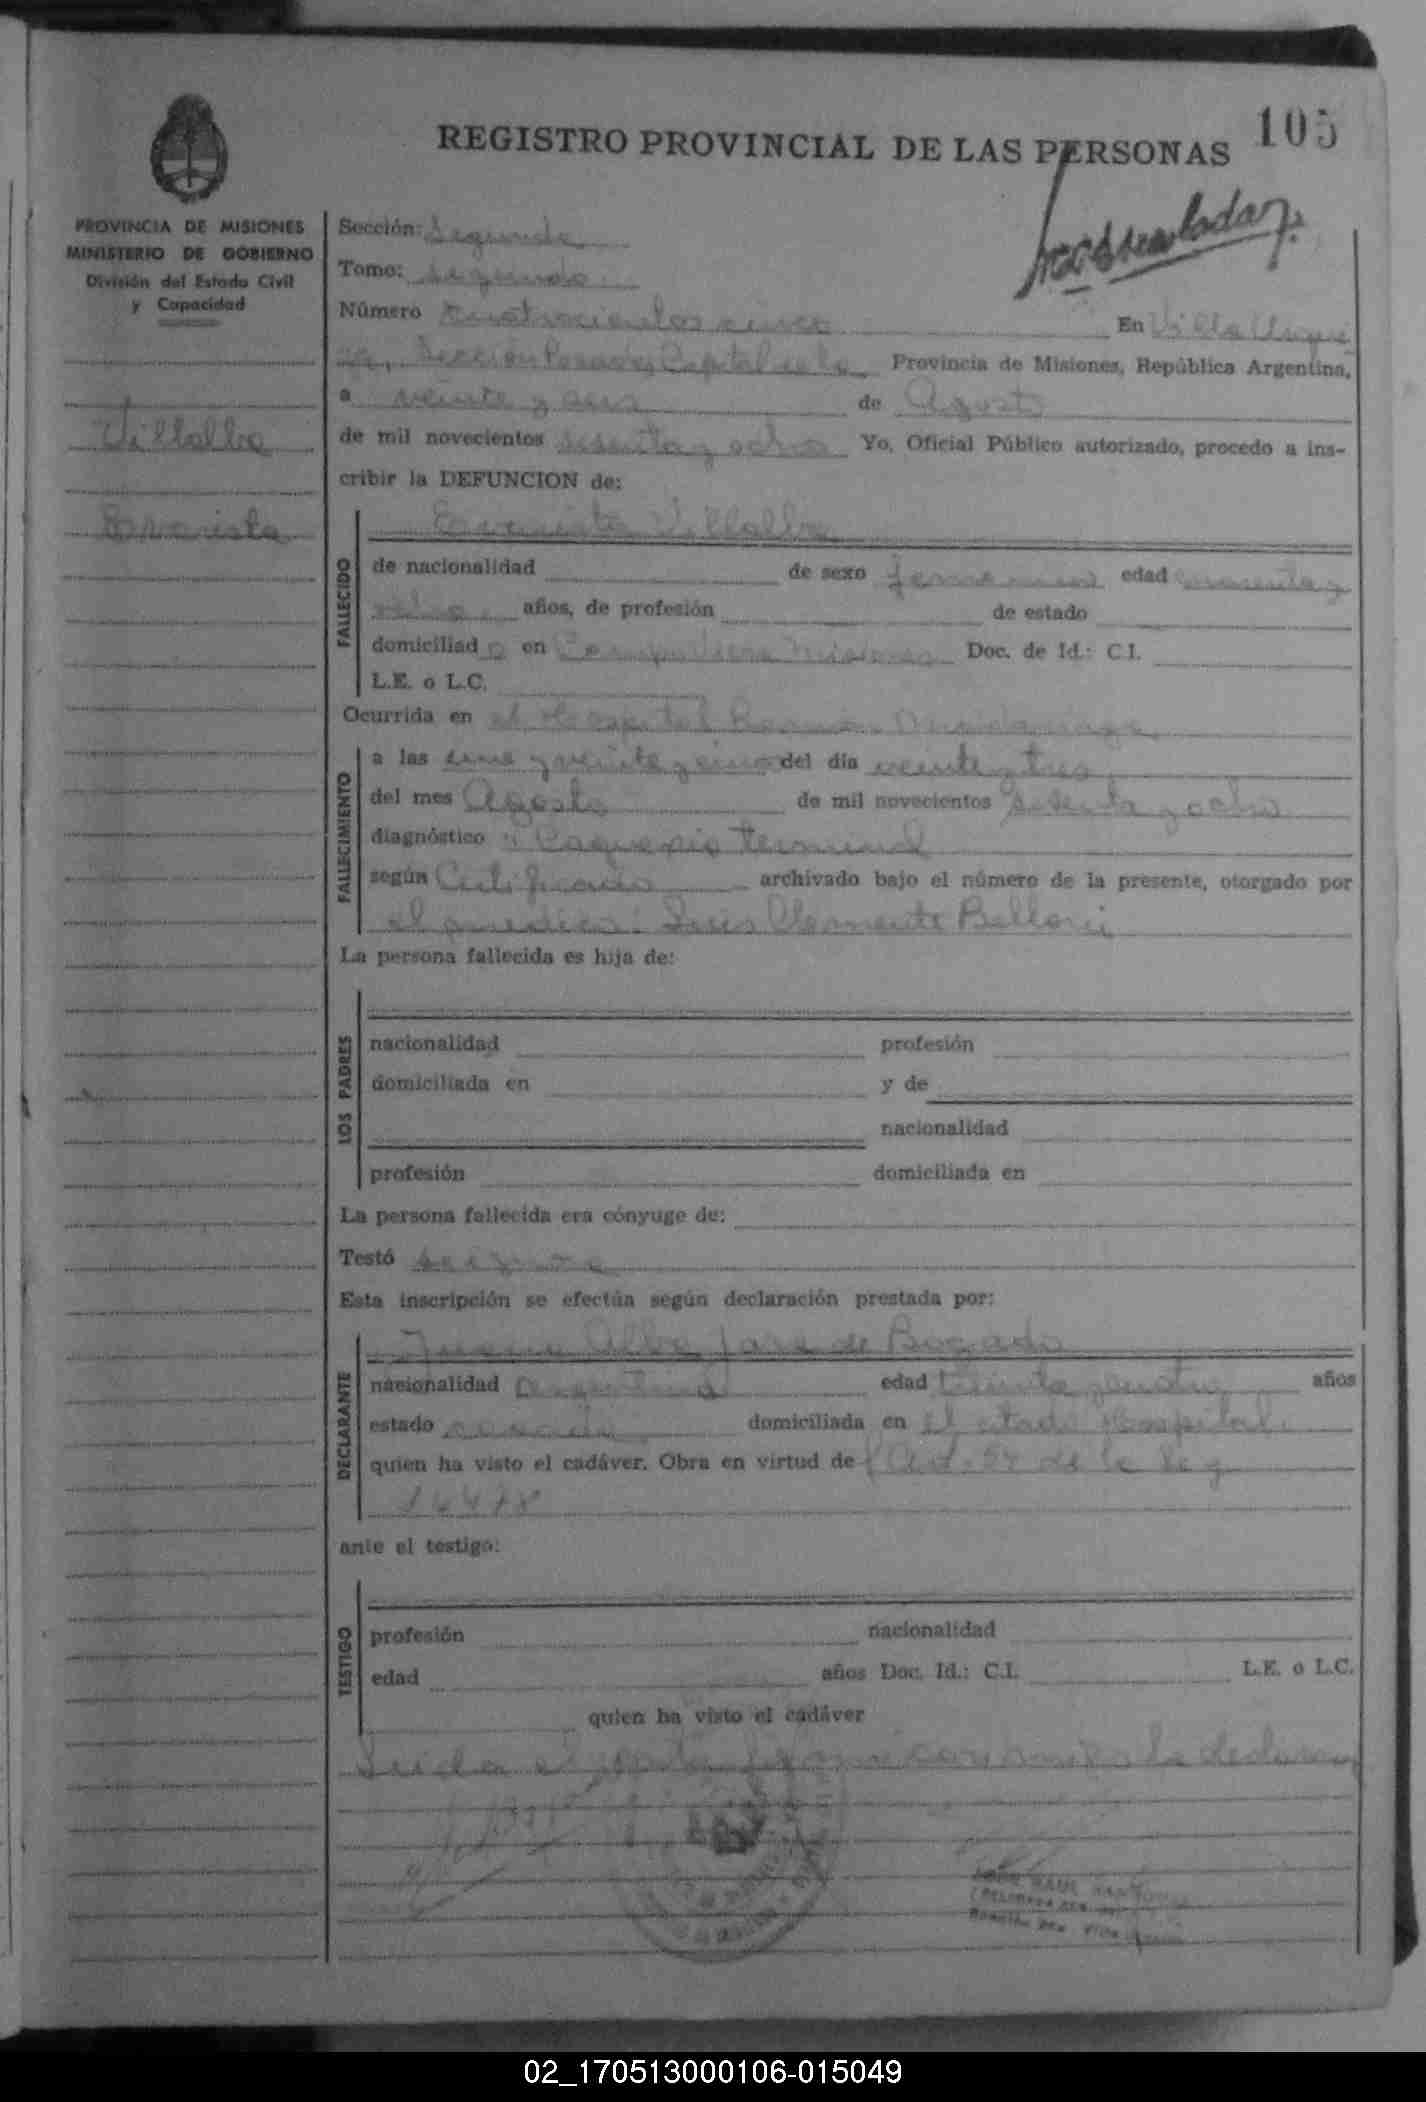 105
REGISTRO PROVINCIAL DE LAS PERSONAS
PROVINCIA DE MISIONES
MINISTERIO DE GOBIERNO
División del Estado Civil
y Capacidad
Villalba
Evarista
Sección: Segunda
Tomo: Segundo
Número Cuatrocientos cinco En Villa Urqui
za, Sección Posadas Capital de la Provincia de Misiones, República Argentina,
a veinte y seis de Agosto
de mil novecientos sesenta y ocho Yo, Oficial Público autorizado, procedo a ins-
cribir la DEFUNCION de:
FALLECIDO
Evarista Villalba
de nacionalidad de sexo femenino edad y
ocho años, de profesión de estado
domiciliad o en Campo Viera Misiones Doc. de Id.: C.I.
L.E. o L.C.
Ocurrida en el Hospital Ramón Madariaga
FALLECIMIENTO
a las y veinte y cinco del día veinte y tres
del mes Agosto de mil novecientos sesenta y ocho
diagnóstico : Caquexia terminal
según Certificado archivado bajo el número de la presente, otorgado por
el médico: Luis Clemente Belloni
La persona fallecida es hija de:
LOS PADRES
nacionalidad profesión
domiciliada en y de
nacionalidad
profesión domiciliada en
La persona fallecida era cónyuge de:
Testó se ignora
Esta inscripción se efectúa según declaración prestada por:
DECLARANTE
Jara de Bogado
nacionalidad argentina edad treinta y cuatro años
estado casada domiciliada en el citado Hospital
quien ha visto el cadáver. Obra en virtud de Art. de la Ley
ante el testigo:
TESTIGO
profesión nacionalidad
edad años Doc. Id.: C.I. L.E. o L.C.
quien ha visto el cadáver
Leida el acta la
02_170513000106-015049